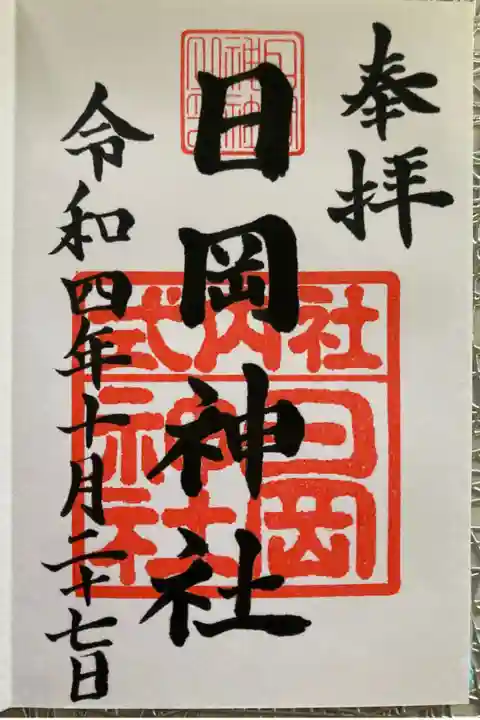 奉拝
日岡神社
令和四年十月二十七日
式内社
日岡
神社